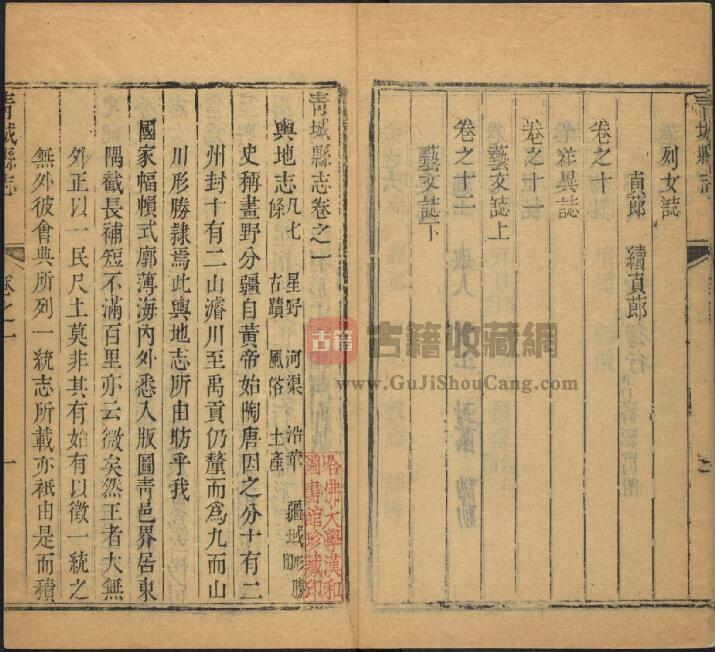 青城縣志
列女誌
貞節 續貞節
卷之十
祥異誌
卷之十一
藝文誌上
卷之十二
藝文誌下
青城縣志卷之一
輿地志凡七條 星野 河渠 沿革 疆域 形勝 古蹟 風俗 土產
史稱畫野分疆自黃帝始陶唐因之分十有二
州封十有二山濬川至禹貢仍釐而為九而山
川形勝隷焉此輿地志所由昉乎我
國家幅幀式廓薄海內外悉入版圖青邑界居東
隅截長補短不滿百里亦云微矣然王者大無
外正以一民尺土莫非其有始有以徵一統之
無外彼會典所列一統志所載亦袛由是而積
青城縣志
卷之一
一
哈佛大學漢和
圖書館珍藏印
古籍
古籍收藏網
www.GuJiShouCang.com